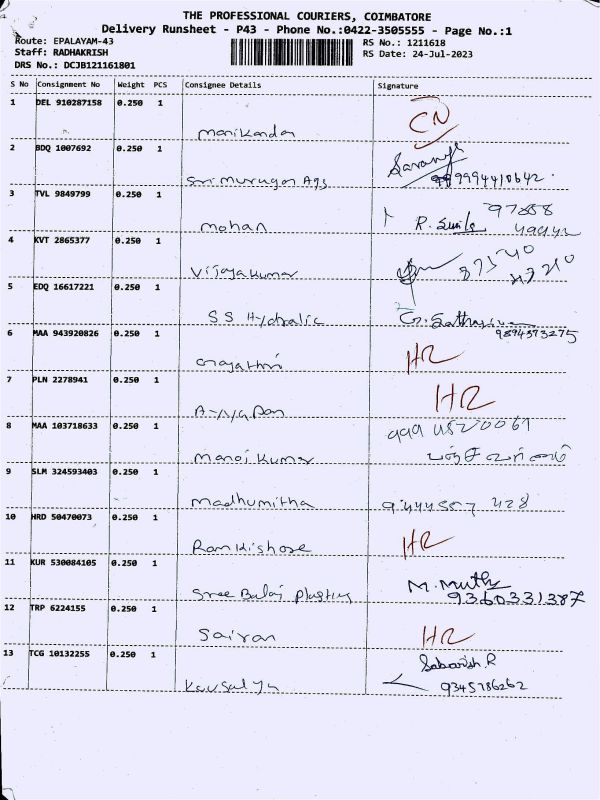 THE PROFESSIONAL COURIERS, COIMBATORE
Delivery Runsheet - P43 - Phone No.:0422-3505555 - Page No.:1
Route: EPALAYAM-43 RS No.: 1211618
Staff: RADHAKRISH RS Date: 24-Jul-2023
DRS No.: DCJB121161801
S No Consignment No Weight PCS Consignee Details Signature
1 DEL 910287158 0.250 1
Manikandan CN
2 BDQ 1007692 0.250 1
Sri Murugan Ags
3 TVL 9849799 0.250 1
mohan R.
4 KVT 2865377 0.250 1
Vijayakumar
5 EDQ 16617221 0.250 1
SS Hydralic
9894573275
6 MAA 943920826 0.250 1
Gayathri HR
7 PLN 2278941 0.250 1
HR
8 MAA 103718633 0.250 1
Manoj Kumar
9 SLM 324593403 0.250 1
Madhumitha
10 HRD 50470073 0.250 1
Ramkishore HR
11 KUR 530084105 0.250 1
Sree Balaj Plastics M. Muthu
9360331387
12 TRP 6224155 0.250 1
Sairan HR
13 TCG 10132255 0.250 1
Sabarish.R
Kousalya 9345786262